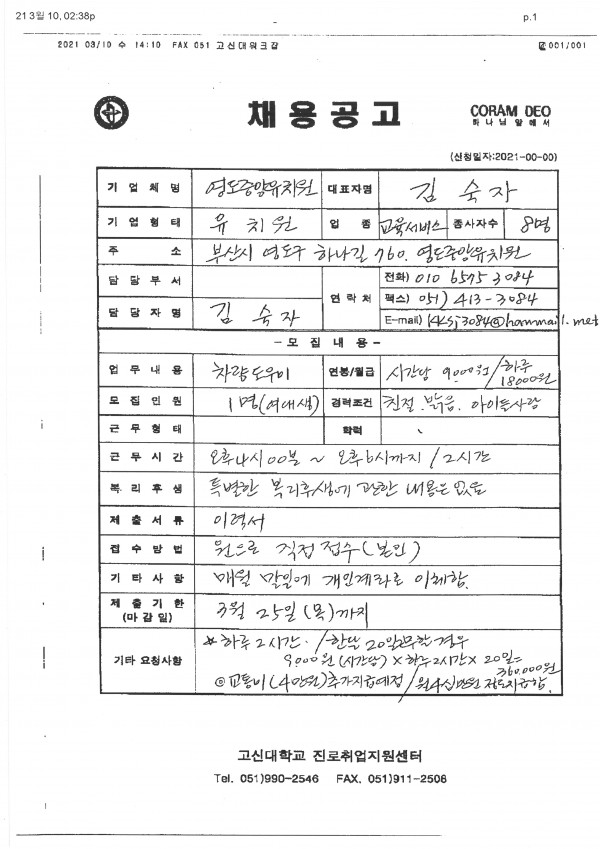 21 3월 10, 02:38p p.1
2021 03/10 수 14:10 FAX 051 고신대워크잡 001/001
채용공고
CORAM DEO
하나님 앞에서
(신청일자:2021-00-00)
기 업 체 명 영도중앙유치원 대표자명 김 숙 자
기 업 형 태 유 치 원 업 종 교육서비스 종사자수 8명
주 소 부산시 영도구 하나길 760. 영도중앙유치원
담 당 부 서 연 락 처 전화) 010 6575 3084
팩스) 051) 413-3084
담 당 자 명 김 숙 자 E-mail) kksj3084@hanmail.net
- 모 집 내 용 -
업 무 내 용 차량도우미 연봉/월급 시간당 9,000원/하루 18000원
모 집 인 원 1명(여대생) 경력조건 친절. 밝음. 아이들사랑
근 무 형 태 학력
근 무 시 간 오후4시00분 ~ 오후6시까지 / 2시간
복 리 후 생 특별한 복리후생에 관한 내용은 없음
제 출 서 류 이력서
접 수 방 법 원으로 직접 접수(본인)
기 타 사 항 매월 말일에 개인계좌로 이체함.
제 출 기 한
(마 감 일) 3월 25일(목)까지
기타 요청사항 * 하루 2시간. / 한달 20일근무할 경우
9,000원(시간당)×하루2시간×20일=
360,000원
◎교통비(4만원)추가지급예정/월4십만원 정도지급함.
고신대학교 진로취업지원센터
Tel. 051)990-2546 FAX. 051)911-2508